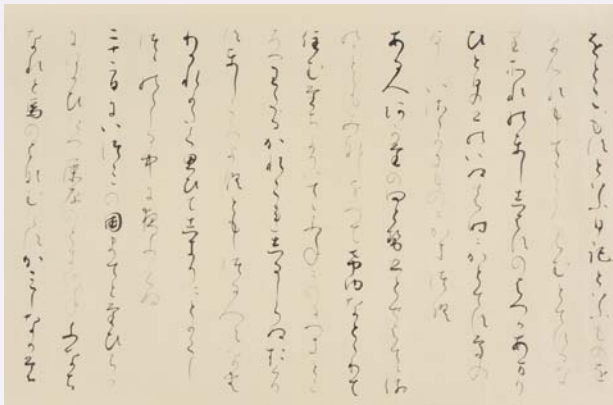 をとこもすといふ日記といふものを
をんなもしてこころみむとてするな
り それのとしのしはすのはつかあまり
ひとひのいぬのときにかとてす その
よしいささかものにかきつく
ある人あかたの四とせ五とせはて
てれいのことともみなしをへてけゆなととりて
住むたちよりいててふねにのるへきとこ
ろへわたる かれこれしるしらぬおくり
す としころよくくらへつる人々なむ
わかれかたく思ひてしきりにとかくし
つつののしるうちに夜ふけぬ
二十二日にいつみの国まてとたひらか
に願たつ ふちはらのときさねふなち
なれと馬のはなむけす かみなかしも